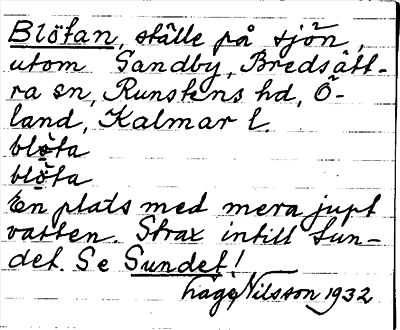 Blötan, ställe på sjön,
utom Sandby, Bredsätt-
ra sn, Runstens hd, Ö-
land, Kalmar l.
blö̀ta
blö̀ta
En plats med mera jupt
vatten. Strax intill Sun-
det. Se Sundet!
Håge Nilsson 1932